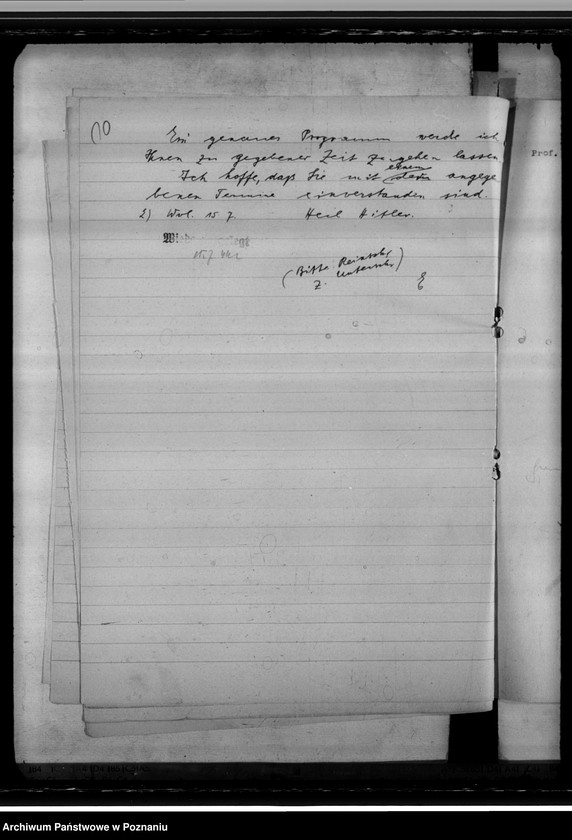 10
Ein genaues Programm werde ich
Prof.
Ihnen zu gegebener Zeit zugehen lassen
einem
Ich hoffe, daß Sie mit angege
benen Termine einverstanden sind.
2) Wvl. 15 7. Heil Hitler.
15.7
(Bitte Reinschr
z. Unterschr)
E
Archiwum Państwowe w Poznaniu